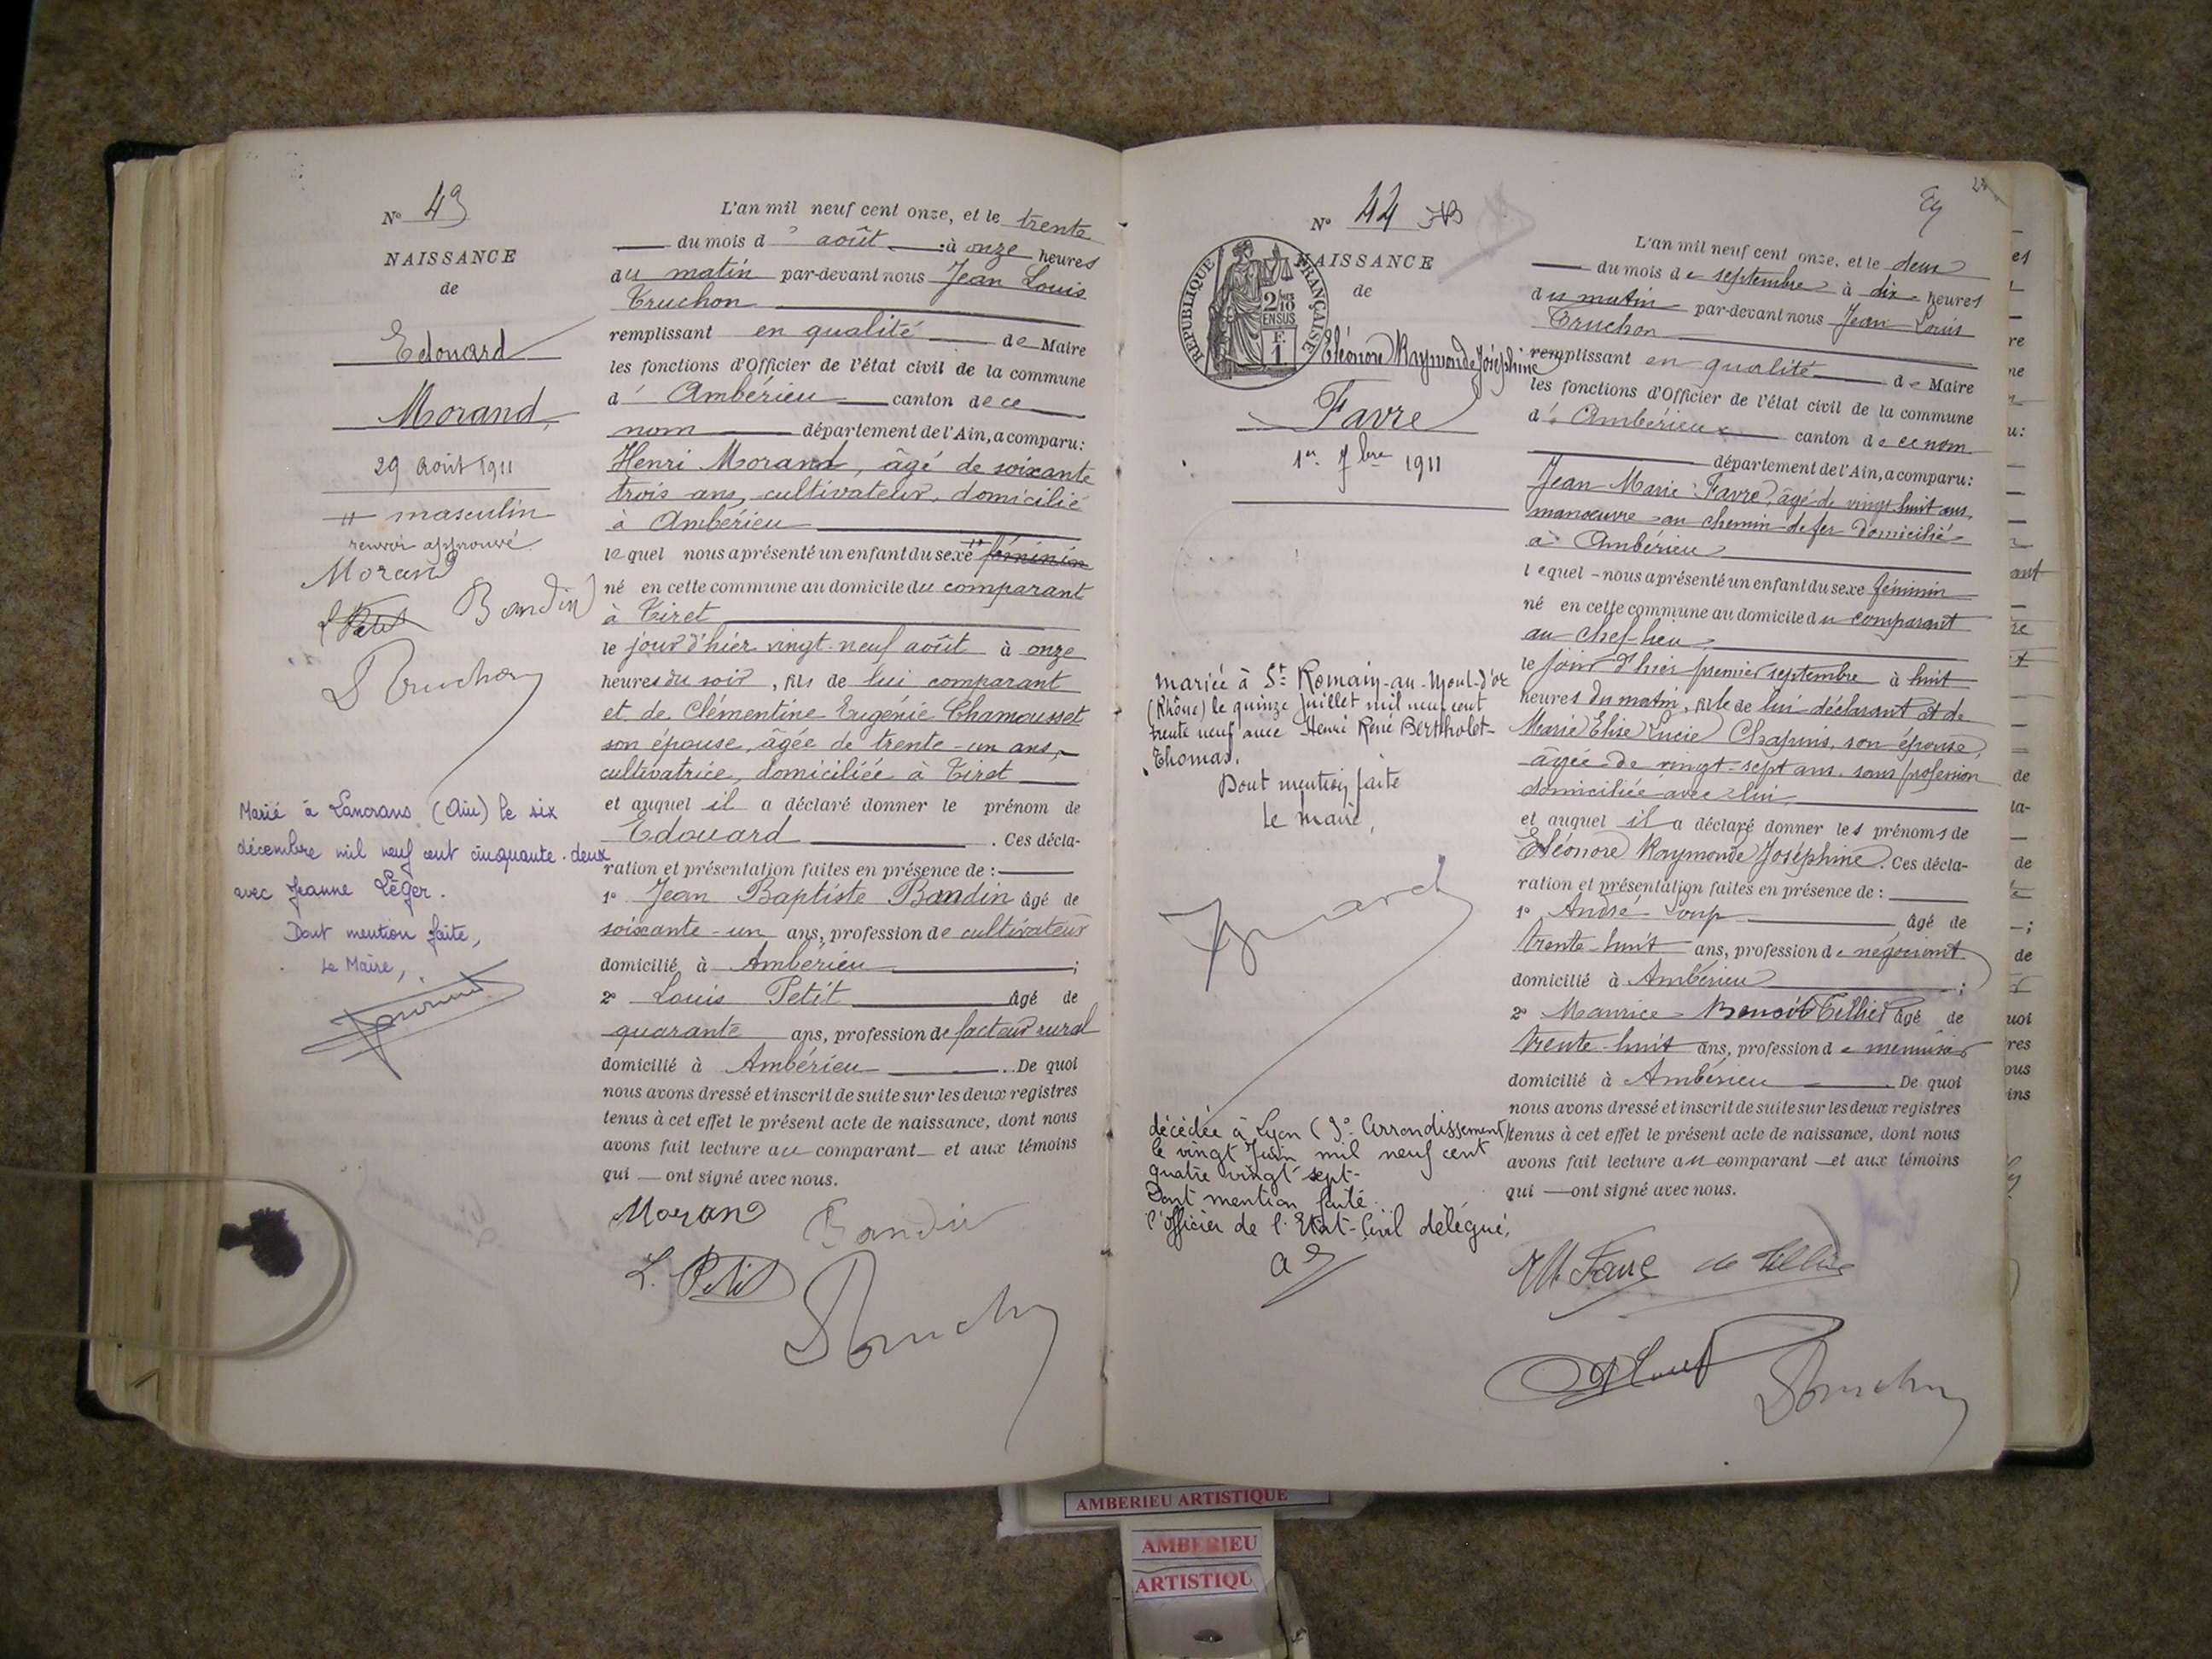 N° 43
NAISSANCE
de
Edouard
Morand
29 août 1911
masculin
renvoi approuvé
Morand
L Petit Bandin
Truchon
Marié à Lancrans (Ain) le six
décembre mil neuf cent cinquante-deux
avec Jeanne Léger.
Dont mention faite,
Le Maire,
L'an mil neuf cent onze, et le trente
du mois d'août à onze heures
du matin par-devant nous Jean Louis
Truchon
remplissant en qualité de Maire
les fonctions d'Officier de l'état civil de la commune
d'Ambérieu canton de ce
nom département de l'Ain, a comparu:
Henri Morand, âgé de soixante
trois ans, cultivateur, domicilié
à Ambérieu
lequel nous a présenté un enfant du sexe féminin
né en cette commune au domicile du comparant
à Tiret
le jour d'hier vingt-neuf août à onze
heures du soir, fils de lui comparant
et de Clémentine Eugénie Chamousset
son épouse, âgée de trente-un ans,
cultivatrice, domiciliée à Tiret
et auquel il a déclaré donner le prénom de
Edouard. Ces décla-
ration et présentation faites en présence de :
1° Jean Baptiste Bandin âgé de
soixante-un ans, profession de cultivateur
domicilié à Ambérieu ;
2° Louis Petit âgé de
quarante ans, profession de facteur rural
domicilié à Ambérieu. De quoi
nous avons dressé et inscrit de suite sur les deux registres
tenus à cet effet le présent acte de naissance, dont nous
avons fait lecture au comparant et aux témoins
qui ont signé avec nous.
Morand Bandin
L. Petit Truchon
N° 44
NAISSANCE
de
RÉPUBLIQUE FRANÇAISE
2/10
EN SUS
F.
1
Eléonore Raymonde Joséphine
Favre
1er 7bre 1911
mariée à St Romain-au-Mont-d'or
(Rhône) le quinze juillet mil neuf cent
trente neuf avec Henri René Bertholet-
Thomas.
Dont mention faite
Le maire,
décédée à Lyon (3° Arrondissement)
le vingt Juin mil neuf cent
quatre vingt sept-
Dont mention faite.
l'officier de l'Etat-Civil délégué,
L'an mil neuf cent onze, et le deux
du mois de septembre à dix heures
du matin par-devant nous Jean Louis
Truchon
remplissant en qualité de Maire
les fonctions d'Officier de l'état civil de la commune
d'Ambérieu canton de ce nom
département de l'Ain, a comparu:
Jean Marie Favre, âgé de vingt huit ans,
manœuvre au chemin de fer domicilié
à Ambérieu
lequel nous a présenté un enfant du sexe féminin
né en cette commune au domicile du comparant
au chef-lieu
le jour d'hier premier septembre à huit
heures du matin, fille de lui déclarant et de
Marie Elise Lucie Chapuis, son épouse,
âgée de vingt-sept ans, sans profession
domiciliée avec lui
et auquel il a déclaré donner les prénoms de
Eléonore Raymonde Joséphine. Ces décla-
ration et présentation faites en présence de :
1° André Loup âgé de
trente-huit ans, profession de négociant
domicilié à Ambérieu ;
2° Maurice Benoit Tellier âgé de
trente-huit ans, profession de menuisier
domicilié à Ambérieu. De quoi
nous avons dressé et inscrit de suite sur les deux registres
tenus à cet effet le présent acte de naissance, dont nous
avons fait lecture au comparant et aux témoins
qui ont signé avec nous.
Favre
Loup Truchon
AMBERIEU ARTISTIQUE
AMBERIEU
ARTISTIQU